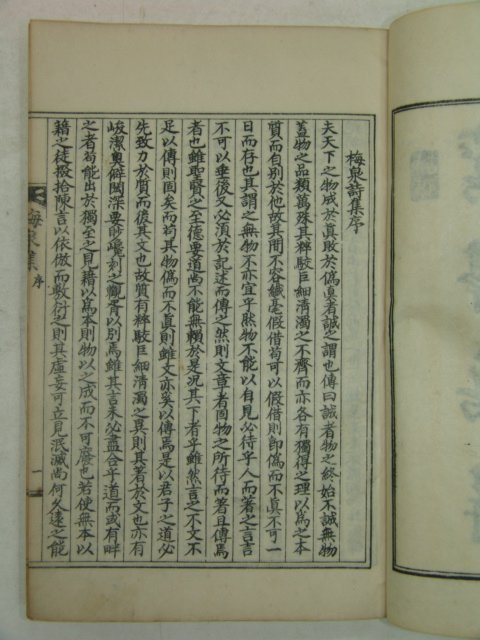 梅泉詩集序
夫天下之物成於真敗於偽真者誠之謂也傳曰誠者物之終始不誠無物
蓋物之品類萬殊其粹駁巨細清濁之不齊而亦各有獨得之理以為之本
質而自別於他故其間不容纖毫假借苟可以假借則卽偽而不真不可一
日而存也其謂之無物不亦宜乎然物不能以自見必待乎人而著之言言
不可以垂後又必須於記述而傳之然則文章者固物之所待而著且傳焉
者也雖聖賢之至德要道尚不能無賴於是況其下者乎雖然言之不文不
足以傳則固矣而苟其物偽而不真則雖文亦奚以傳焉是以君子之道必
先致力於質而後其文也故質有粹駁巨細清濁之異則其著於文也亦有
峻潔奧僻閎深要眇巉刻之 以別焉雖其言未必盡合乎道而或有畔
之者苟能出於獨至之見藉以為本則物以之成而不可廢也若使無本以
藉之徒掇拾陳言以依倣而敷衍之則其虛妄可立見泯滅尚何久遠之能
梅泉集 序 一